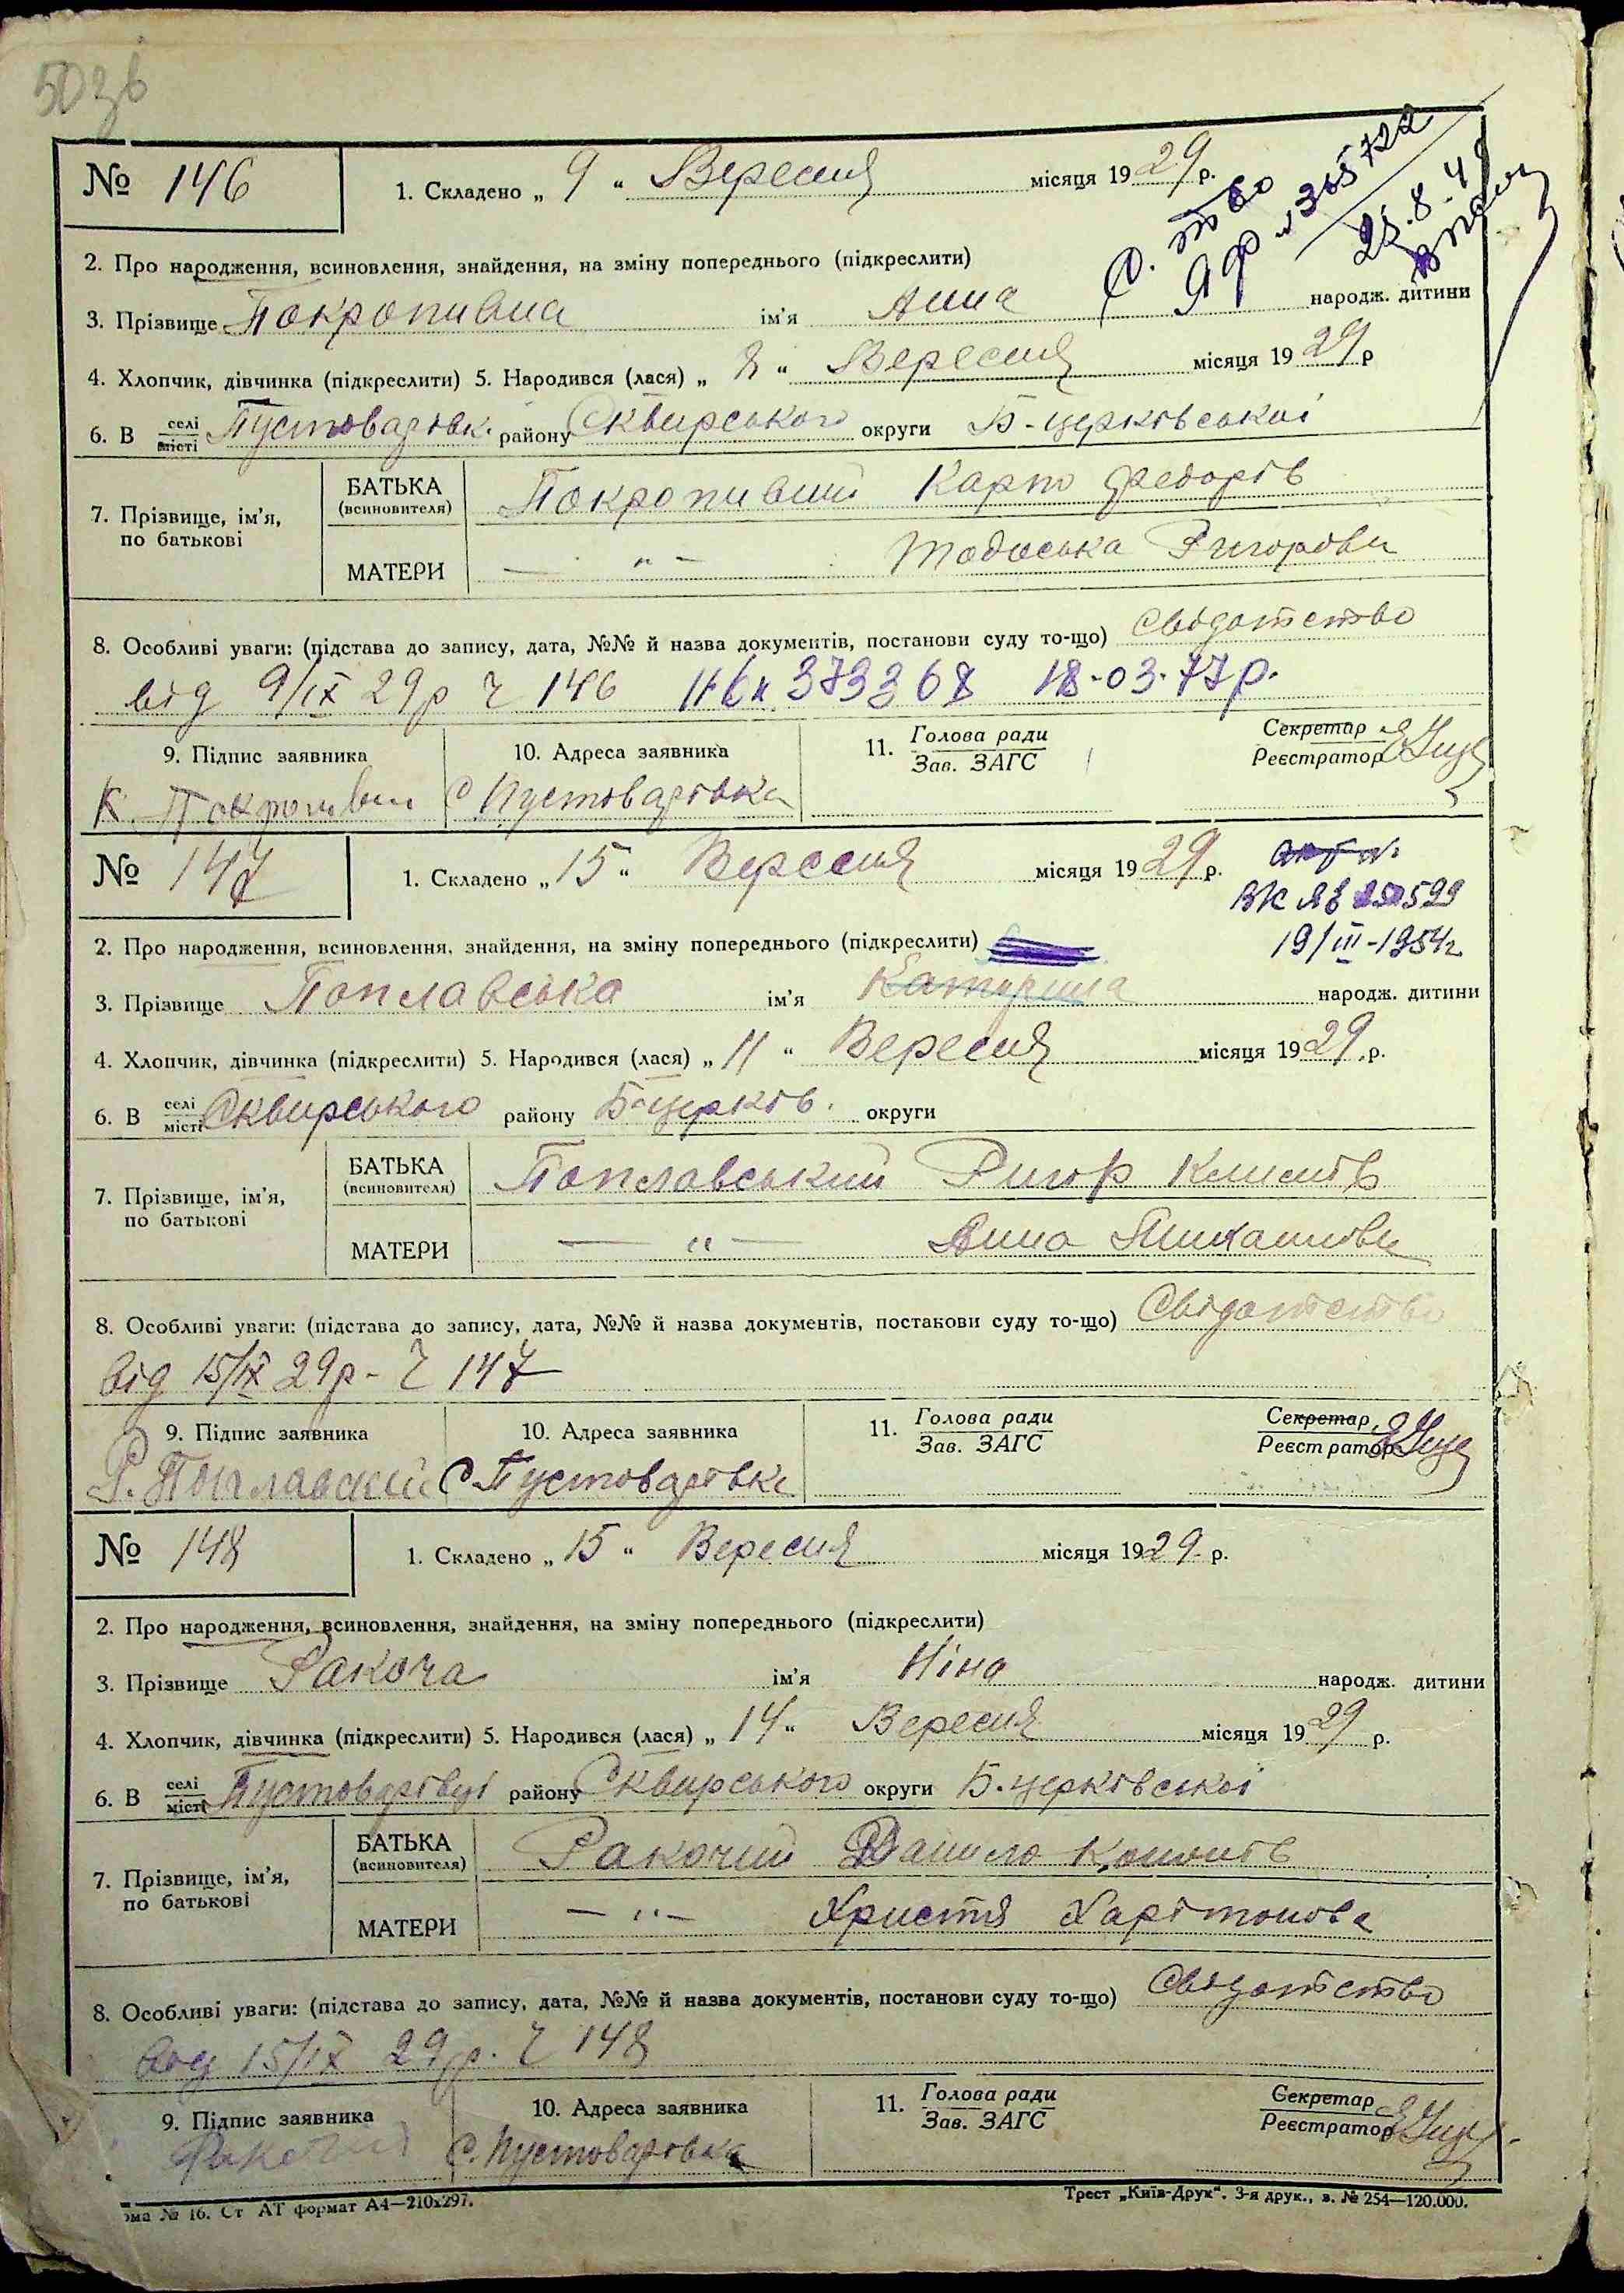 50зв
№ 146
1. Складено „ 9 “ Вересня місяця 1929 р.
2. Про народження, всиновлення, знайдення, на зміну попереднього (підкреслити)
3. Прізвище Покропивна ім'я Анна народж. дитини
4. Хлопчик, дівчинка (підкреслити) 5. Народився (лася) „ 8 “ Вересня місяця 1929 р
6. В селі місті Пустоварівк. району Сквирського округи Б-церківської
7. Прізвище, ім'я, по батькові
БАТЬКА (всиновителя) Покропивний Карпо Федорів
МАТЕРИ — „ — Тодоська Григорівн
8. Особливі уваги: (підстава до запису, дата, №№ й назва документів, постанови суду то-що) Свідотство
від 9/IX 29р Ч 146 373368 18-03-77р.
9. Підпис заявника
10. Адреса заявника
11. Голова ради Зав. ЗАГС
Секретар Реєстратор
К. Покропивни
С Пустоварівка
№ 147
1. Складено „ 15 “ Вересня місяця 1929 р.
19/III-1954г
2. Про народження, всиновлення, знайдення, на зміну попереднього (підкреслити)
3. Прізвище Поплавська ім'я Катерина народж. дитини
4. Хлопчик, дівчинка (підкреслити) 5. Народився (лася) „ 11 “ Вересня місяця 1929 р.
6. В селі місті Сквирського району Б-церків. округи
7. Прізвище, ім'я, по батькові
БАТЬКА (всиновителя) Поплавський Ригор
МАТЕРИ — „ — Анна
8. Особливі уваги: (підстава до запису, дата, №№ й назва документів, постанови суду то-що) Свідотство
від 15/IX 29р - Ч 147
9. Підпис заявника
10. Адреса заявника
11. Голова ради Зав. ЗАГС
Секретар Реєстратор
Р. Поплавский
С Пустоварівка
№ 148
1. Складено „ 15 “ Вересня місяця 1929 р.
2. Про народження, всиновлення, знайдення, на зміну попереднього (підкреслити)
3. Прізвище Ракоча ім'я Ніна народж. дитини
4. Хлопчик, дівчинка (підкреслити) 5. Народився (лася) „ 14 “ Вересня місяця 1929 р.
6. В селі місті Пустоварівці району Сквирського округи Б-церківської
7. Прізвище, ім'я, по батькові
БАТЬКА (всиновителя) Ракочий Данило
МАТЕРИ — „ — Христя Харітонова
8. Особливі уваги: (підстава до запису, дата, №№ й назва документів, постанови суду то-що) Свідотство
від 15/IX 29 р. Ч 148
9. Підпис заявника
10. Адреса заявника
11. Голова ради Зав. ЗАГС
Секретар Реєстратор
Ракочий
С. Пустоварівка
ма № 16. Ст АТ формат А4—210х297.
Трест „Київ-Друк“. 3-я друк., з. № 254—120.000.